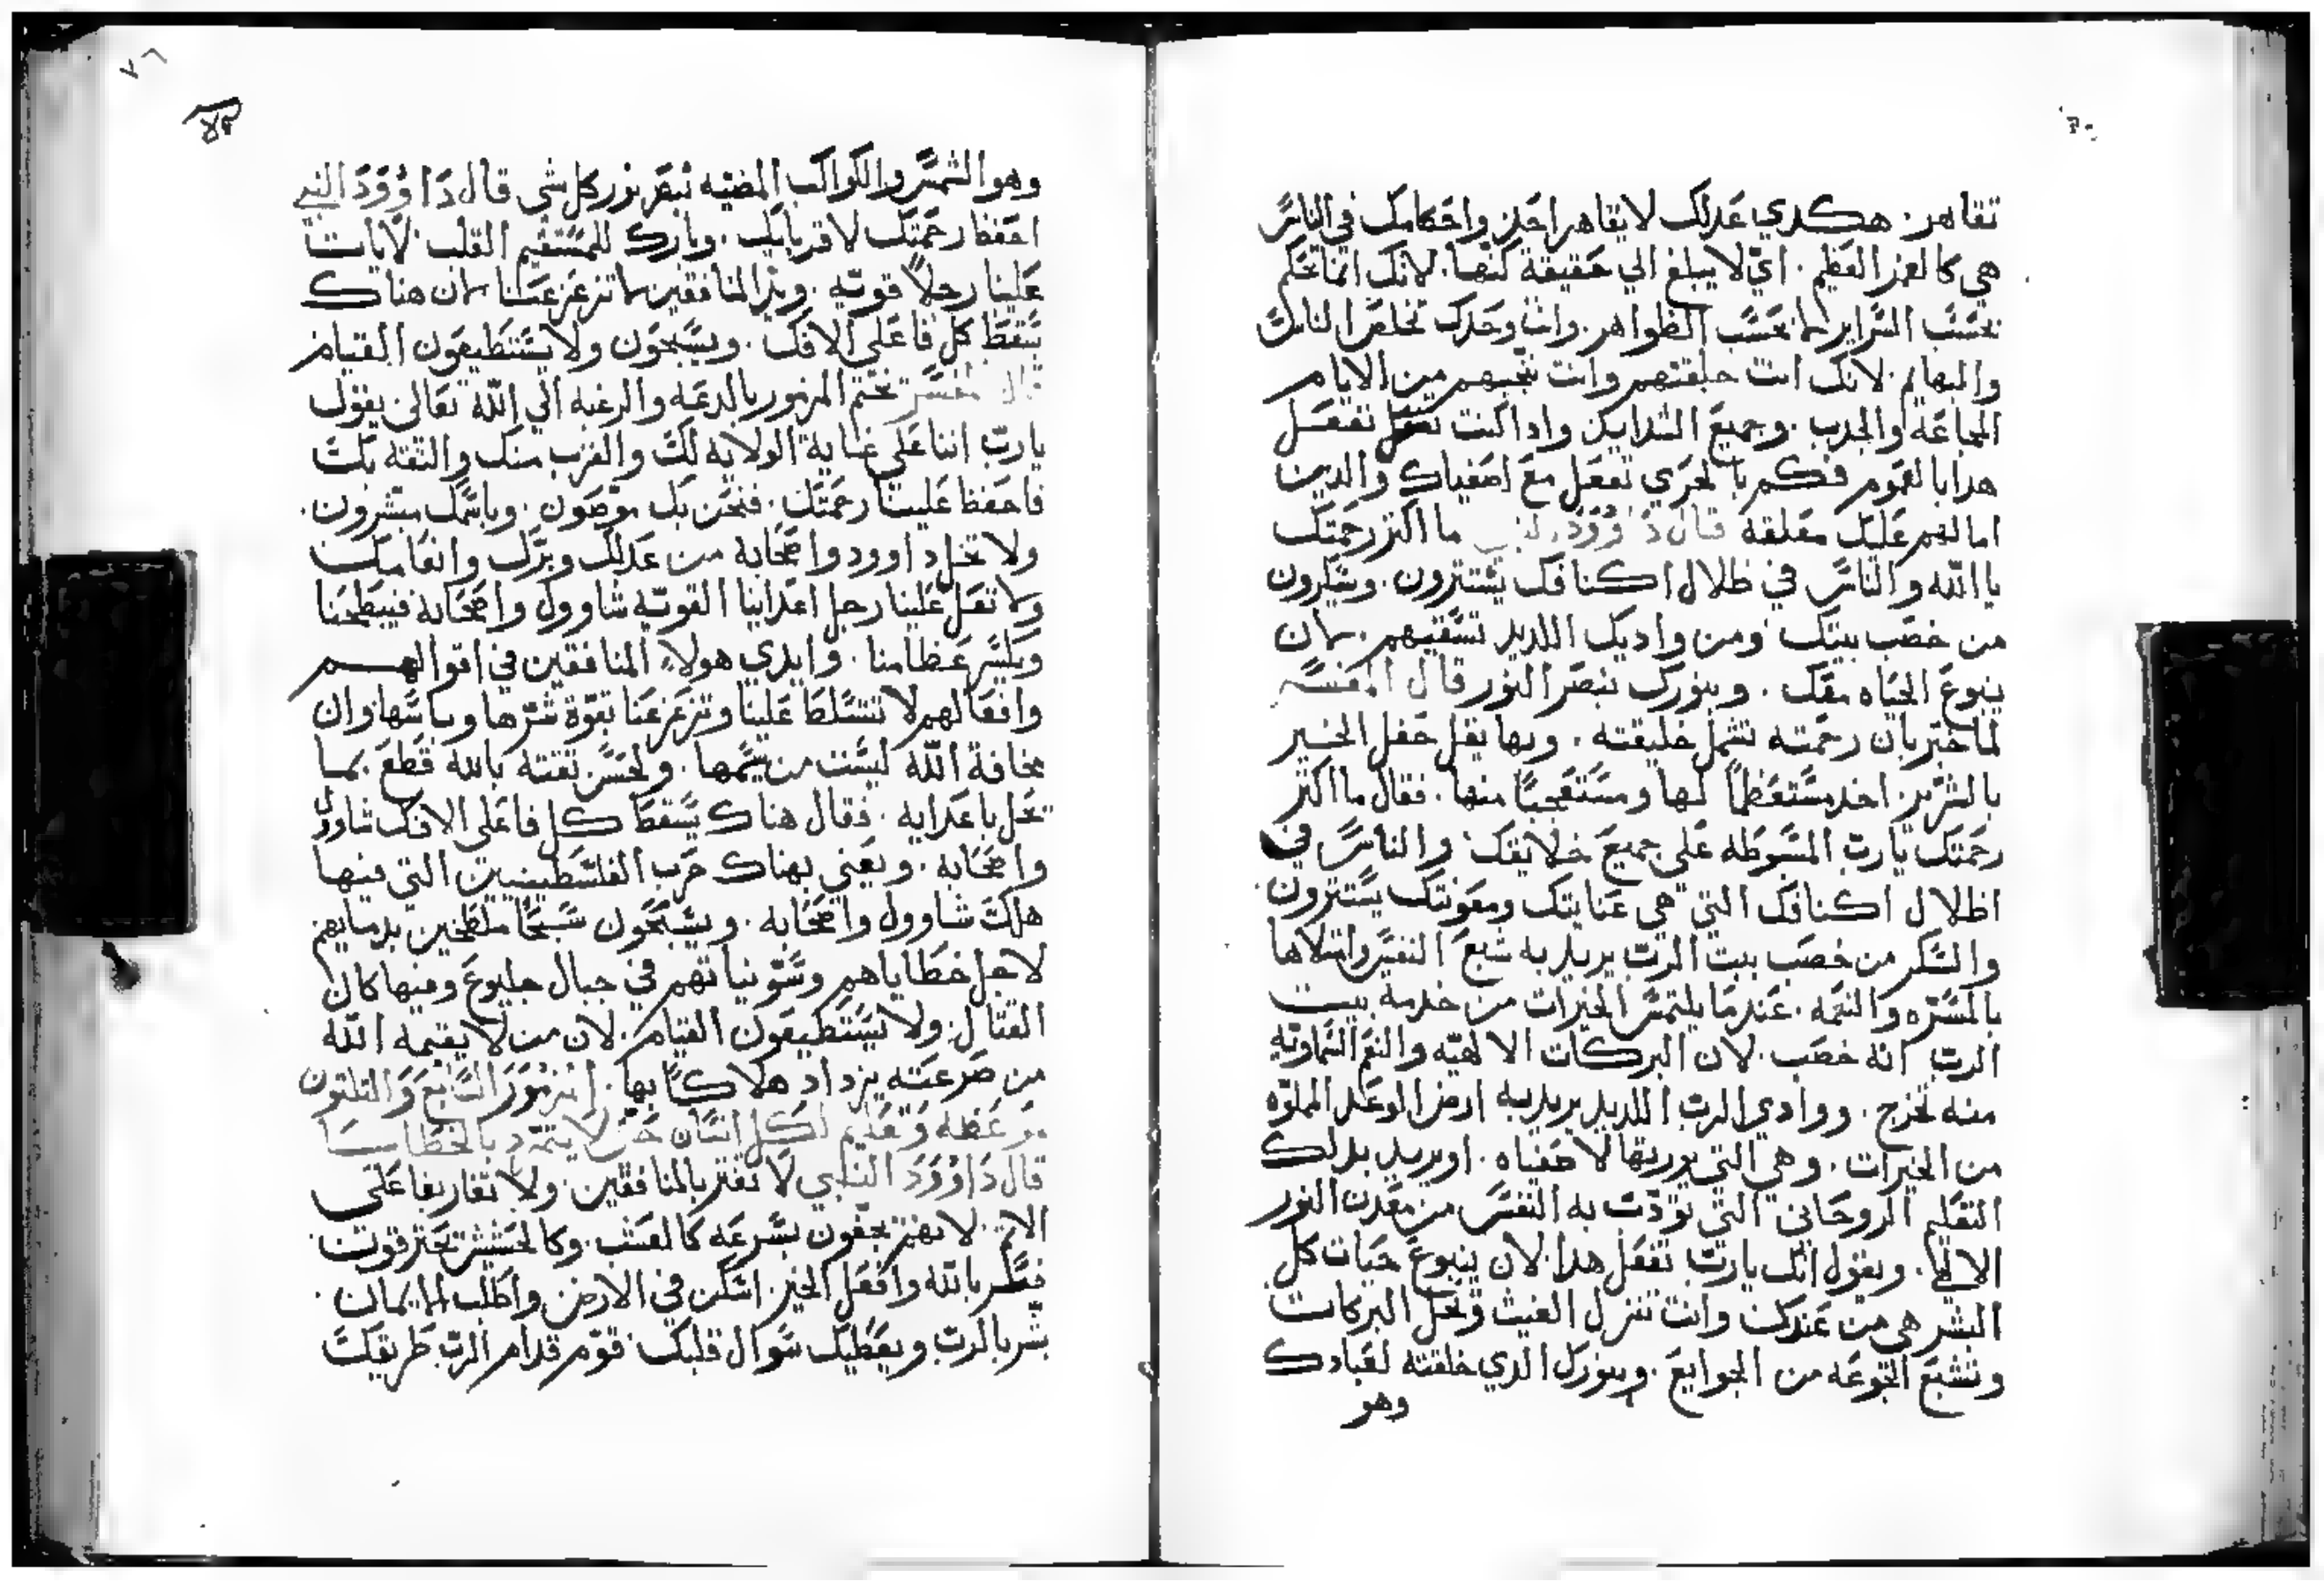 تقاهر. هكدي عدلك لا يقاهر احد. واحكامك في الناس
هي كالغمر العظيم. اي لا يبلغ الي حقيقة كنهها. لانك انما تحكم
بحسب السراير لا بحسب الظواهر. وانت وحدك تخلص الناس
والبهايم. لانك انت خلقتهم وانت تنجيهم من الايام
المجاعه والجدب. وجميع الشدايد. واداكنت تفعل
هدا بالعموم فكم بالحري تفعل مع اصفياك والدين
امالهم عليك معلقه قال داوود النبي ما اكتر رحمتك
يا الله والناس في ظلال اكنافك يستترون. ويسكرون
من خصب بيتك ومن واديك اللديد تسقيهم. لان
ينبوع الحياه معك. وبنورك نبصر النور قال المفسر
لما خبر بان رحمته تشمل خليقته. وبها يقل حفل الخير
بالشرير. اخد مستعظمًا لها ومستعجبًا منها. فقال ما اكتر
رحمتك يا رب المبسوطه على جميع خلايقك. والناس في
اظلال اكنافك التي هي عنايتك ومعونتك يستترون.
والسكر من خصب بيت الرب يريد به شبع النفس وامتلاها
بالمسره والنعمه. عندما يلتمس الخيرات من خدمة بيت
الرب انه خصب. لان البركات الالهيه والنعم السماويه
منه تخرج. ووادي الرب اللديد يريد به ارض الوعد المملوه
من الخيرات. وهي التي يورتها لاصفياه. او يريد بدلك
التعليم الروحاني التي تودت به النفس من معدن النور
الالهي. ويقول انك يا رب تفعل هدا. لان ينبوع حيات كل
البشر هي من عندك وانت تنزل الغيث وتحل البركات
وتشبع الجوعه من الجوايع. وبنورك الدي خلقته لعبادك
وهو
٧٦
وهو الشمس والكواكب المضيه نبصر نور كل شي قال داوود النبي
احفظ رحمتك لاقربايك. وبارك للمستقيم القلب. لا يات
علينا رجل قوته. ويد المنافقين لا تزعزعنا لان هناك
يسقط كل فاعلى الافك. ويسبحون ولا يستطيعون القيام
قال المفسر تختم المزمور بالدعه والرغبه الي الله تعالى يقول
يا رب اننا على غاية الولايه لك والقرب منك والتقه بك
فاحفظ علينا رحمتك. فنحن بك موصون. وباسمك مبشرون.
ولا تخل داوود واصحابه من عدلك وبرك وانعامك
ولا تعل علينا رجل اعداينا القويه شاوول واصحابه فيبطحنا
ويكسر عظامنا. وايدي هولاء المنافقين في اقوالهم
وافعالهم لا تتسلط علينا وتزعزعنا بقوة شرها وباسها وان
مخافة الله ليست من شيمها. ولحسن تقته بالله قطع بما
تحل باعدايه. فقال هناك يسقط كل فاعلى الافك شاوول
واصحابه. ويعني بهناك حرب الفلسطينيين التي فيها
هلك شاوول واصحابه. ويسبحون سبحًا ملطخين بدمايهم
لاجل خطاياهم وسو نياتهم في جبال جليوع وفيها كان
القتال. ولا يستطيعون القيام. لان من لا يقيمه الله
من صرعته يزداد هلاكًا بها. المزمور السابع والتلتون
موعظه وتعليم لكل انسان حتى لا يتمرد بالخطا
قال داوود النبي لا تغتر بالمنافقين. ولا تغار بفاعلى
الاتم. لانهم يجفون بسرعه كالعشب. وكالحشيش يحترقون.
فبشر بالله وافعل الخير. اسكن في الارض واطلب الايمان.
بشر بالرب ويعطيك سوال قلبك. قوم قدام الرب طريقك